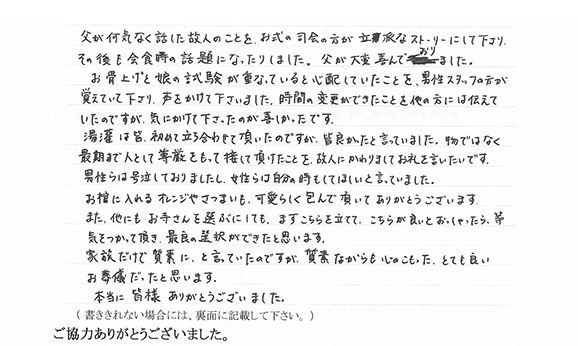 父が何気なく話した故人のことを、お式の司会の方が立派なストーリーにして下さり、
その後も会食時の話題になったりしました。父が大変喜んでおりました。
お骨上げと娘の試験が重なっていると心配していたことを、男性スタッフの方が
覚えていて下さり、声をかけて下さいました。時間の変更ができたことを他の方には伝えて
いたのですが、気にかけて下さったのが嬉しかったです。
湯灌は皆、初めて立ち合わせて頂いたのですが、皆良かったと言っていました。物ではなく
最期まで人として尊厳をもって接して頂けたことを、故人にかわりましてお礼を言いたいです。
男性らは号泣しておりましたし、女性らは自分の時もしてほしいと言っていました。
お棺に入れるオレンジやさつまいも、可愛らしく包んで頂いてありがとうございます。
また、他にもお寺さんを選ぶにしても、まずこちらを立てて、こちらが良いとおっしゃったら、等
気をつかって頂き、最良の選択ができたと思います。
家族だけで質素に、と言っていたのですが、質素ながらも心のこもった、とても良い
お葬儀だったと思います。
本当に皆様ありがとうございました。
（書ききれない場合には、裏面に記載して下さい。）
ご協力ありがとうございました。